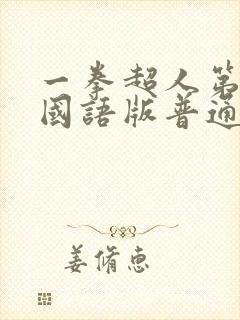 一拳超人第
國語版普通
姜脩惠